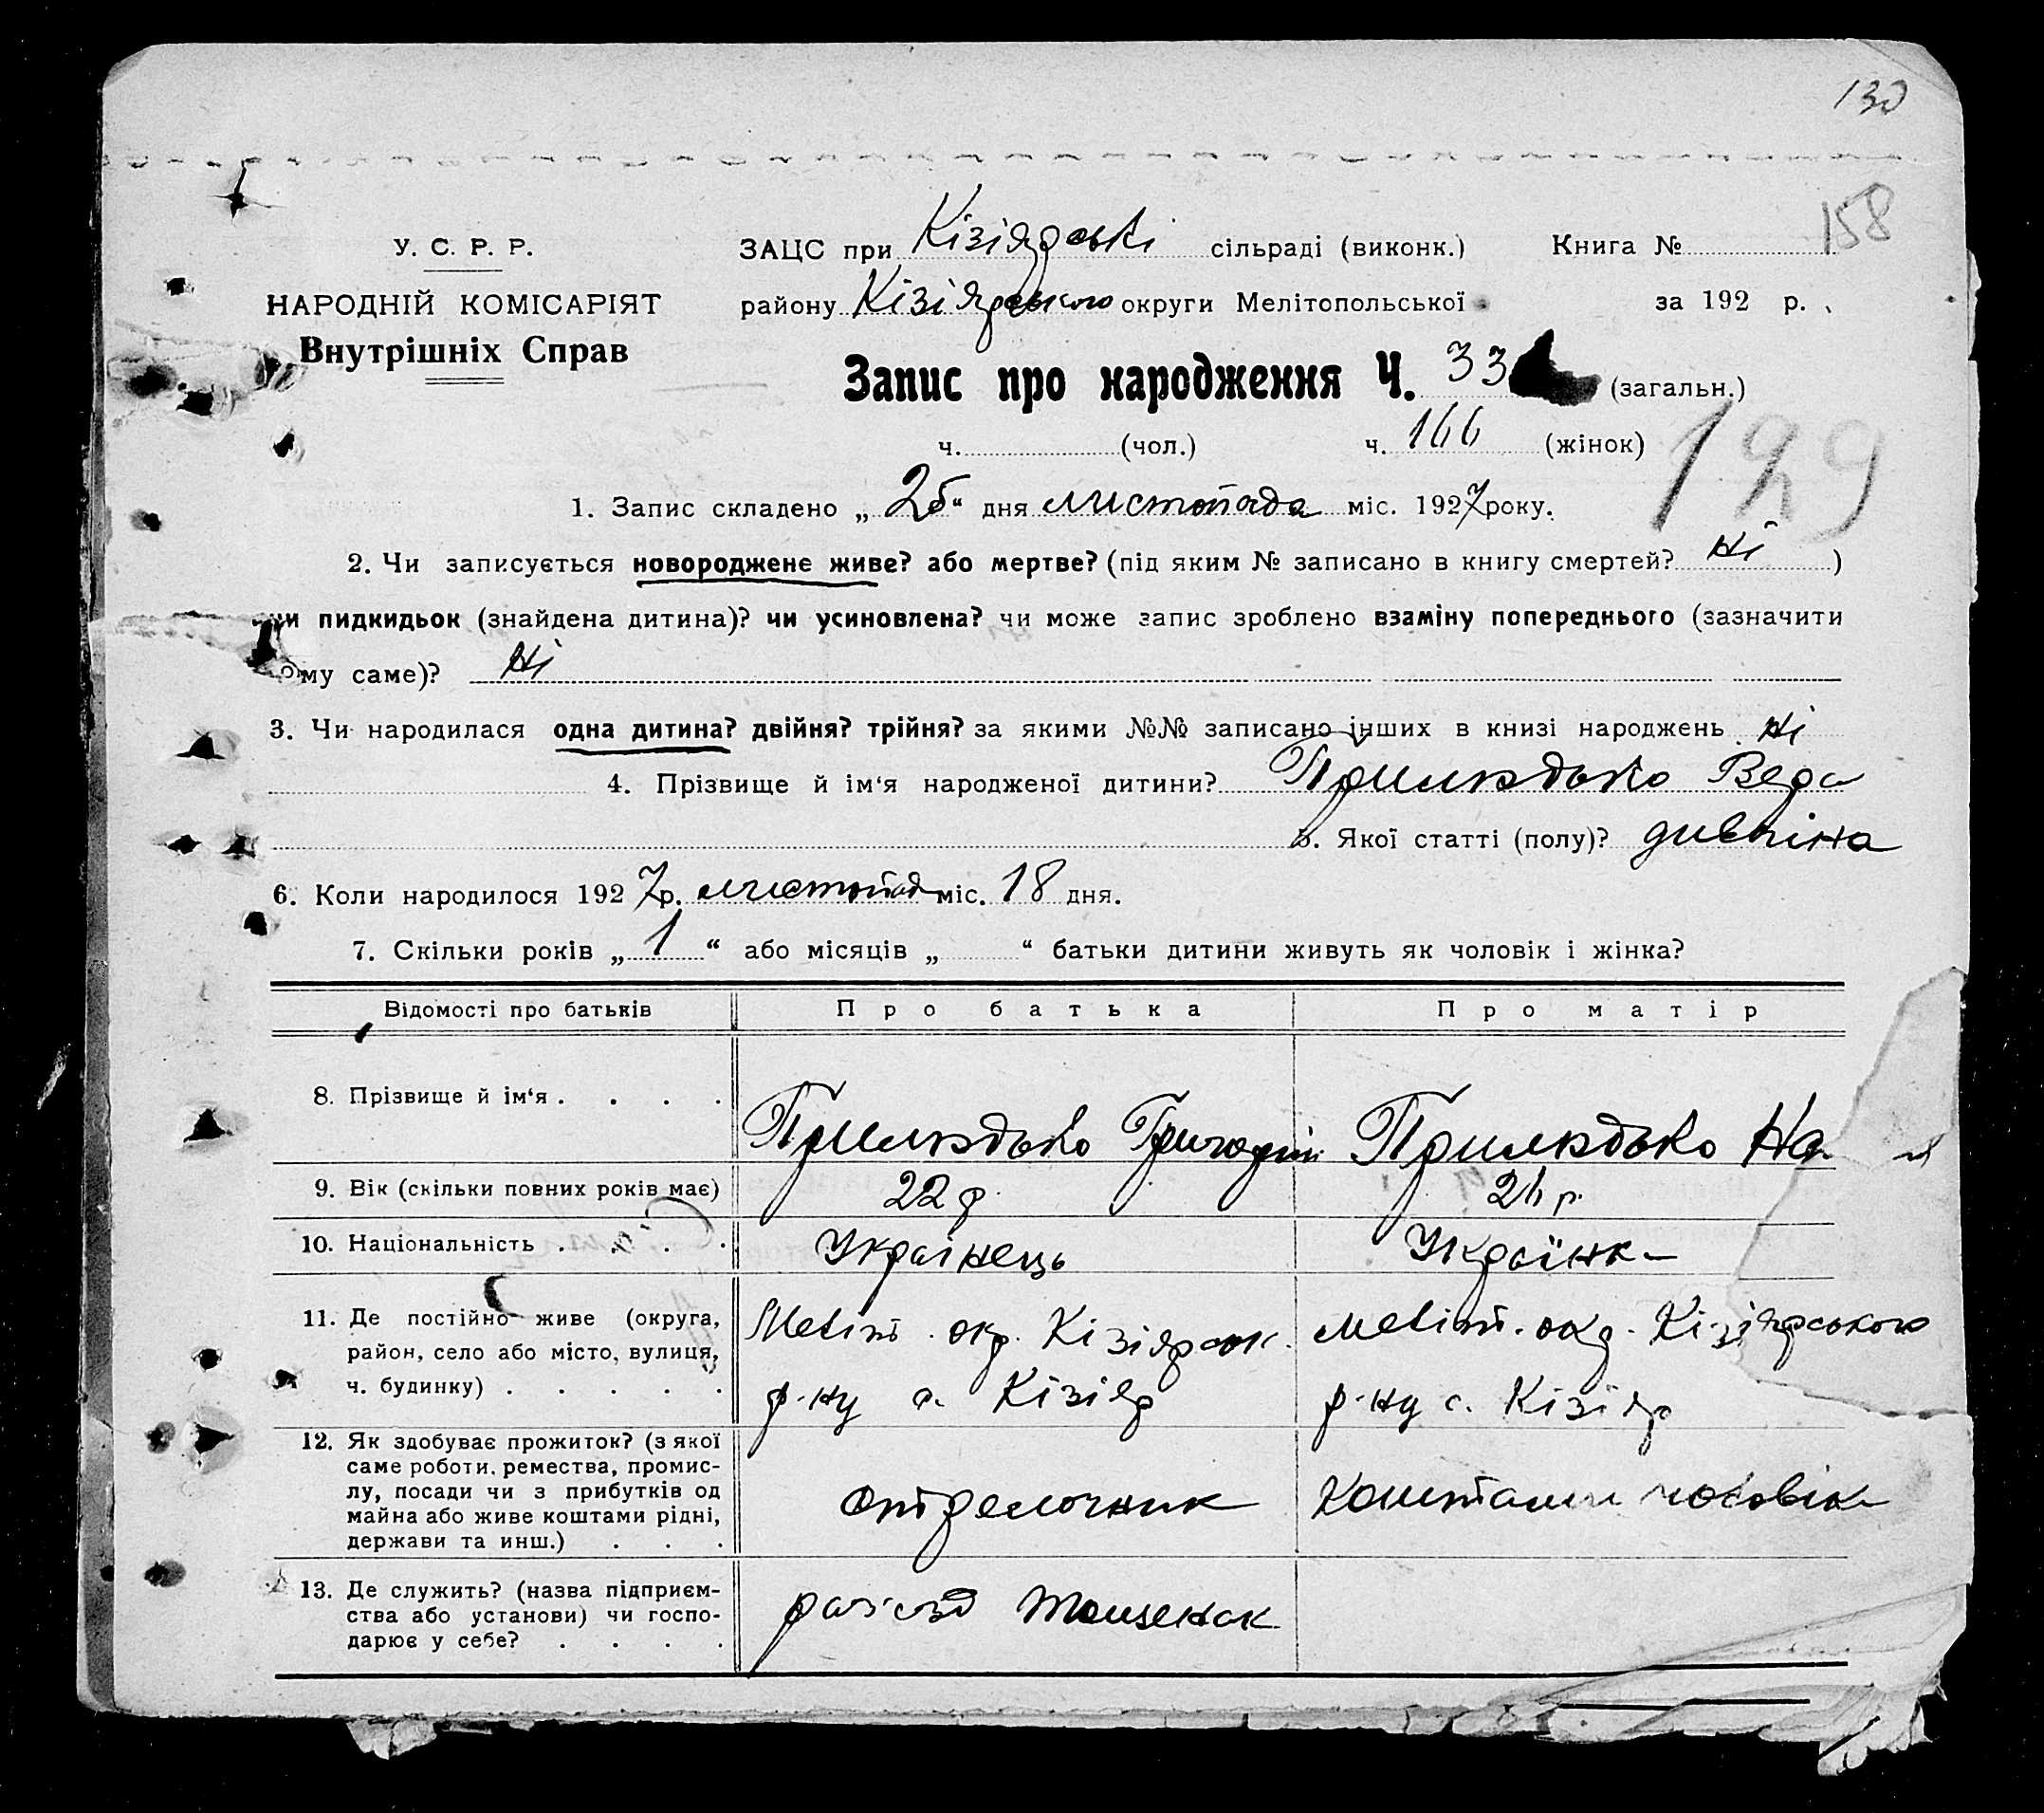 130
158
У. С. Р. Р.
НАРОДНІЙ КОМІСАРІЯТ
Внутрішніх Справ
ЗАЦС при Кізіярські сільраді (виконк.) Книга №
району Кізіярського округи Мелітопольської за 192 р.
Запис про народження Ч. 33 (загальн.)
ч. (чол.) ч. 166 (жінок)
129
1. Запис складено „ 25 “ дня листопада міс. 1927 року.
2. Чи записується новороджене живе? або мертве? (під яким № записано в книгу смертей? Ні )
чи пидкидьок (знайдена дитина)? чи усиновлена? чи може запис зроблено взаміну попереднього (зазначити
ому саме)? Ні
3. Чи народилася одна дитина? двійня? трійня? за якими №№ записано інших в книзі народжень Ні
4. Прізвище й ім‘я народженої дитини? Прилюдько Вера
5. Якої статті (полу)? дивчіна
6. Коли народилося 192 7 р. листопад міс. 18 дня.
7. Скільки років „ 1 “ або місяців „ “ батьки дитини живуть як чоловік і жінка?
Відомості про батьків Про батька Про матір
8. Прізвище й ім‘я . . . . Прилюдько Григорій Прилюдько На
9. Вік (скільки повних років має) 22 р. 21 р.
10. Національність . . . . Українець Українк
11. Де постійно живе (округа,
район, село або місто, вулиця,
ч. будинку) . . . . .
Меліт. окр. Кізіярськ.
р-ну с. Кізіяр
Меліт. окр. Кізіярського
р-ну с. Кізіяр
12. Як здобуває прожиток? (з якої
саме роботи, ремества, промис-
лу, посади чи з прибутків од
майна або живе коштами рідні,
держави та инш.) . . .
стрелочник
Коштами чоловік
13. Де служить? (назва підприєм-
ства або установи) чи госпо-
дарює у себе? . . . .
разъезд Тащенак